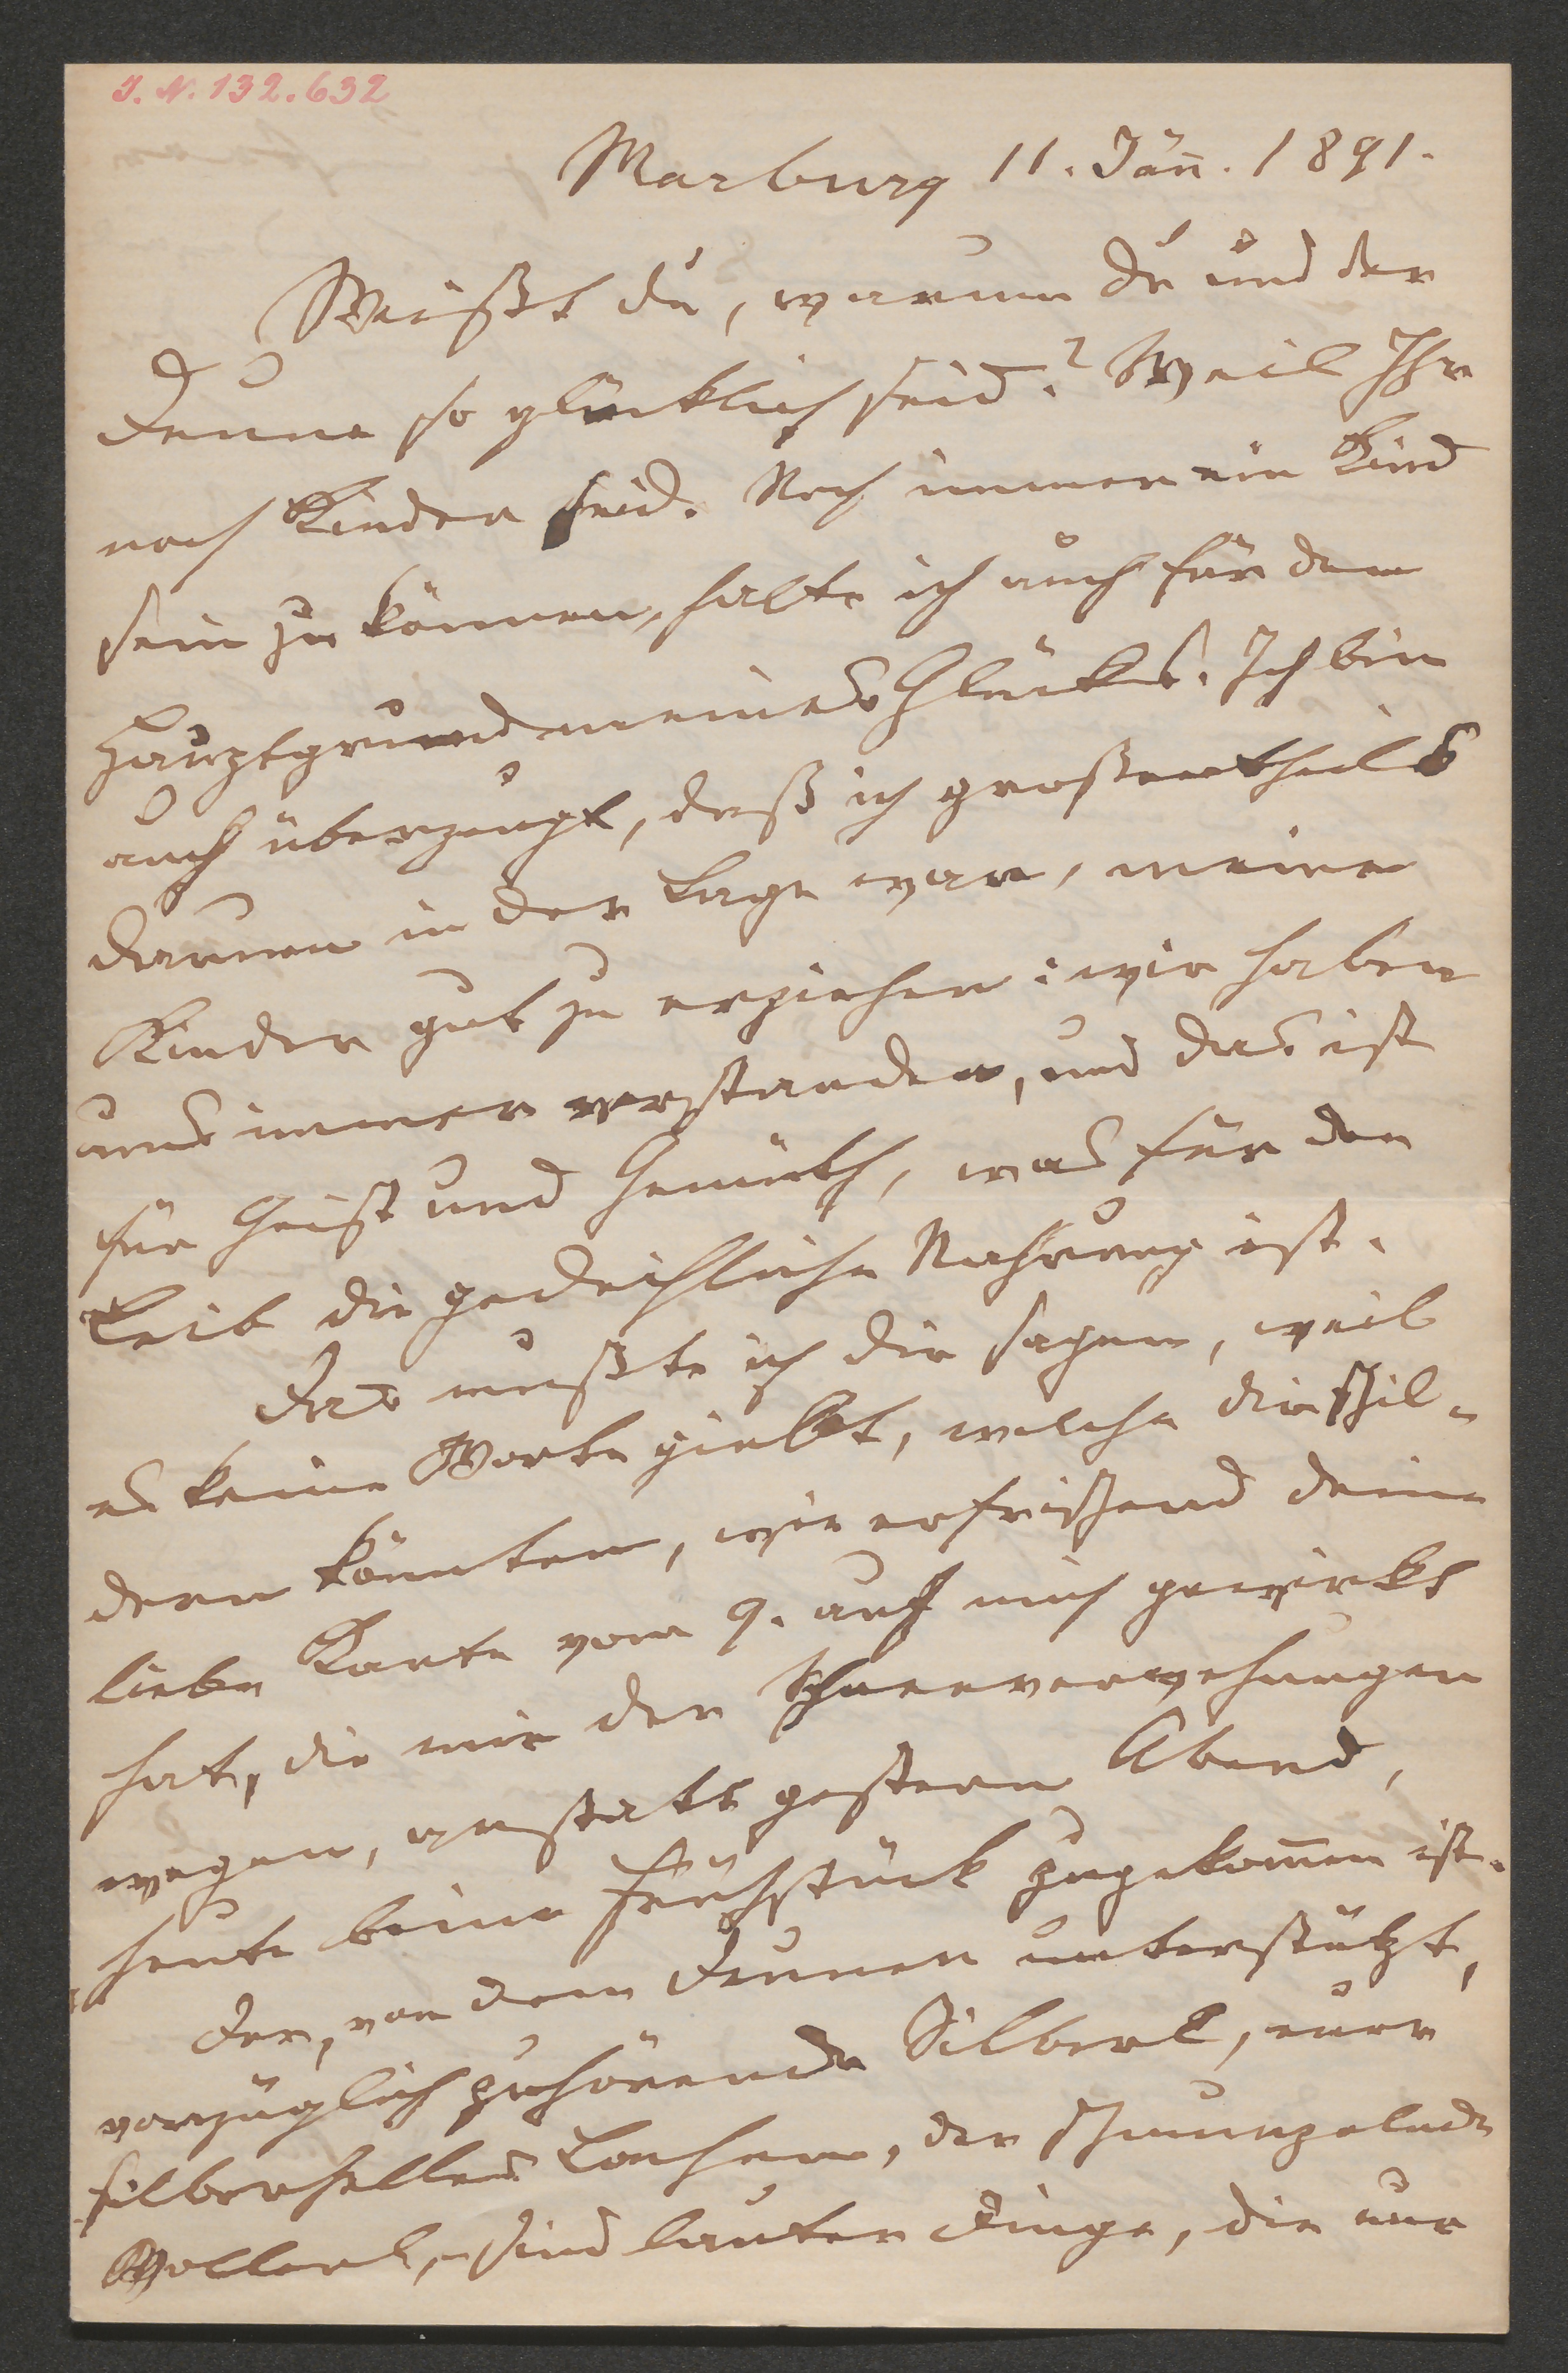 J. N. 132.632
Marburg 11. Jän̄. 1891.
Weißt du, warum du und der
Dumme so glücklich seid? Weil Ihr
noch Kinder seid. Noch immer ein Kind
sein zu können, halte ich auch für den
Hauptgrund meines Glücks. Ich bin
auch überzeugt, daß ich großentheils
darum in der Lage war, meine
Kinder gut zu erziehen: wir haben
uns immer verstanden, und das ist
für Geist und Gemüth, was für den
Leib die gedeihliche Nahrung ist.
Das mußte ich dir sagen, weil
es keine Worte giebt, welche dir schil-
dern könnten, wie erfrischend deine
liebe Karte vom 9. auf mich gewirkt
hat, die mir der Schneeverwehungen
wegen, anstatt gestern Abend,
heute beim Frühstück zugekom̄en ist.
Der, von dem Dummen unterstützt,
vorzüglich zuhörende Silberl, euer
silberhelles Lachen, der schmunzelnde
Wollerl, sind lauter Dinge, die nur